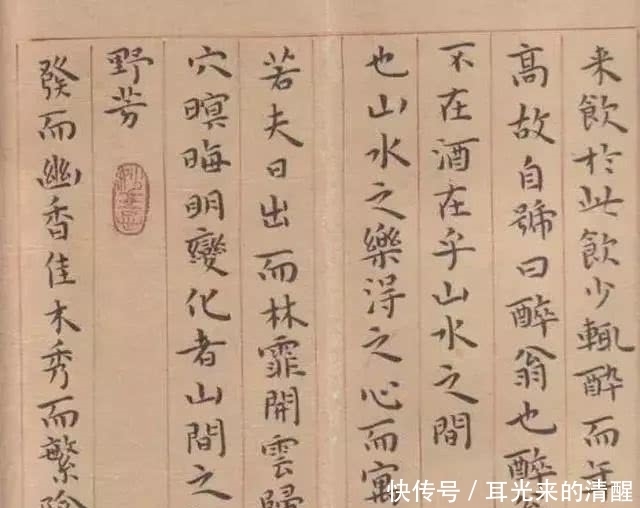 来飲於此飲少輒醉而年
高故自號曰醉翁也醉
不在酒在乎山水之間
也山水之樂淂之心而寓
若夫日出而林霏開雲歸
穴暝晦明變化者山間之
野芳
發而幽香佳木秀而繁陰
快传号/耳光来的清醒